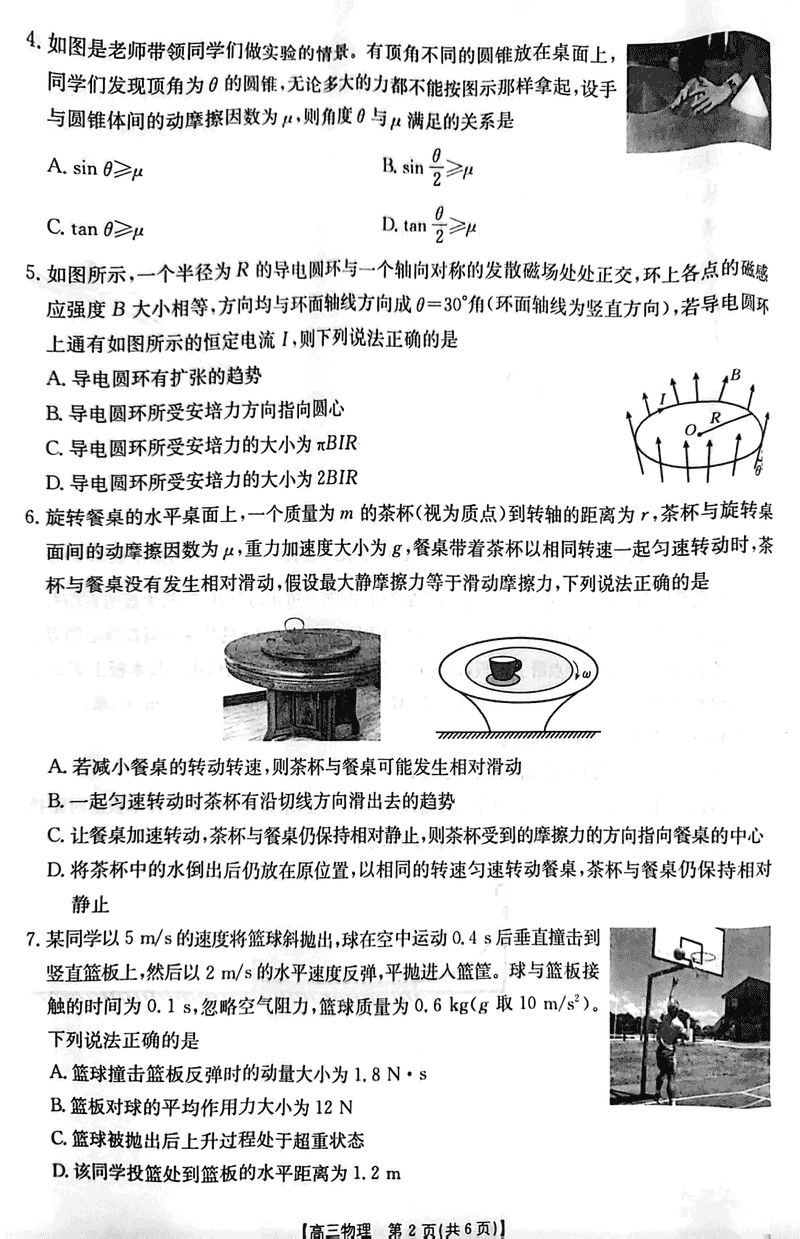 4. 如图是老师带领同学们做实验的情景。有顶角不同的圆锥放在桌面上，
同学们发现顶角为 θ 的圆锥，无论多大的力都不能按图示那样拿起，设手
与圆锥体间的动摩擦因数为 μ，则角度 θ 与 μ 满足的关系是
A. sin θ⩾μ B. sin θ/2⩾μ
C. tan θ⩾μ D. tan θ/2⩾μ
5. 如图所示，一个半径为 R 的导电圆环与一个轴向对称的发散磁场处处正交，环上各点的磁感
应强度 B 大小相等，方向均与环面轴线方向成 θ=30°角(环面轴线为竖直方向)，若导电圆环
上通有如图所示的恒定电流 I，则下列说法正确的是
A. 导电圆环有扩张的趋势
B. 导电圆环所受安培力方向指向圆心
C. 导电圆环所受安培力的大小为 πBIR
D. 导电圆环所受安培力的大小为 2BIR
B
I
R
O
θ
6. 旋转餐桌的水平桌面上，一个质量为 m 的茶杯(视为质点)到转轴的距离为 r，茶杯与旋转桌
面间的动摩擦因数为 μ，重力加速度大小为 g，餐桌带着茶杯以相同转速一起匀速转动时，茶
杯与餐桌没有发生相对滑动，假设最大静摩擦力等于滑动摩擦力，下列说法正确的是
ω
A. 若减小餐桌的转动转速，则茶杯与餐桌可能发生相对滑动
B. 一起匀速转动时茶杯有沿切线方向滑出去的趋势
C. 让餐桌加速转动，茶杯与餐桌仍保持相对静止，则茶杯受到的摩擦力的方向指向餐桌的中心
D. 将茶杯中的水倒出后仍放在原位置，以相同的转速匀速转动餐桌，茶杯与餐桌仍保持相对
静止
7. 某同学以 5 m/s 的速度将篮球斜抛出，球在空中运动 0.4 s 后垂直撞击到
竖直篮板上，然后以 2 m/s 的水平速度反弹，平抛进入篮筐。球与篮板接
触的时间为 0.1 s，忽略空气阻力，篮球质量为 0.6 kg(g 取 10 m/s²)。
下列说法正确的是
A. 篮球撞击篮板反弹时的动量大小为 1.8 N·s
B. 篮板对球的平均作用力大小为 12 N
C. 篮球被抛出后上升过程处于超重状态
D. 该同学投篮处到篮板的水平距离为 1.2 m
【高三物理 第 2 页(共 6 页)】